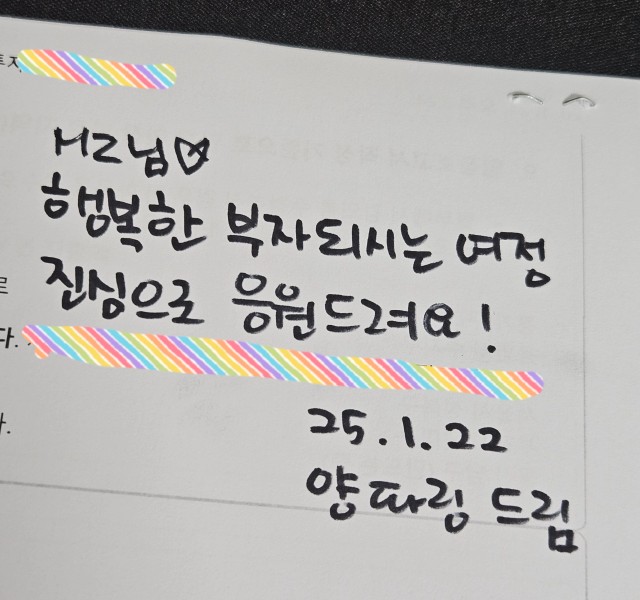 HZ님♡
행복한 부자되시는 여정
진심으로 응원드려요!
다.
25.1.22
다.
양파링 드림